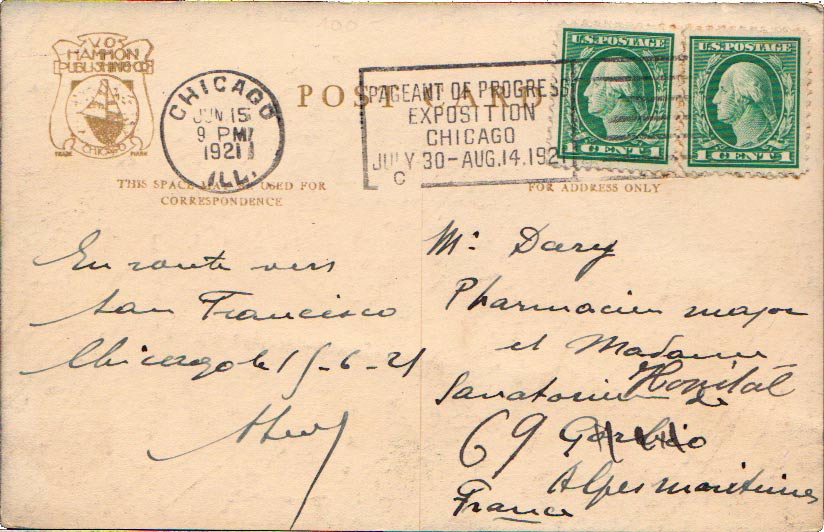 V.O.
HAMMON
PUBLISHING CO
CHICAGO
TRADE MARK
CHICAGO
JUN 15
9 PM
1921
ILL.
POST CARD
PAGEANT OF PROGRESS
EXPOSITION
CHICAGO
JULY 30-AUG.14.1921
C
U.S. POSTAGE
1 CENT 1
U.S. POSTAGE
1 CENT 1
THIS SPACE MAY BE USED FOR
CORRESPONDENCE
En route vers
San Francisco
Chicago le 15-6-21
FOR ADDRESS ONLY
Mr Dary
Pharmacien major
et Madame
Sanatorium Hopital de
69 Gorbio
Alpes maritimes
France